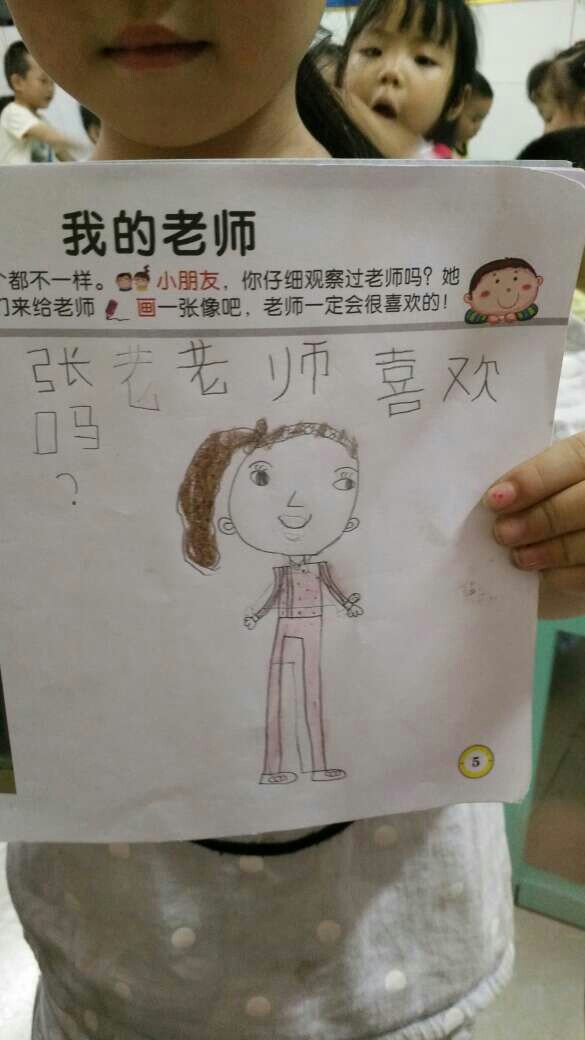 我的老师
个都不一样。小朋友，你仔细观察过老师吗？她
们来给老师画一张像吧，老师一定会很喜欢的！
张老老师喜欢
吗
？
5